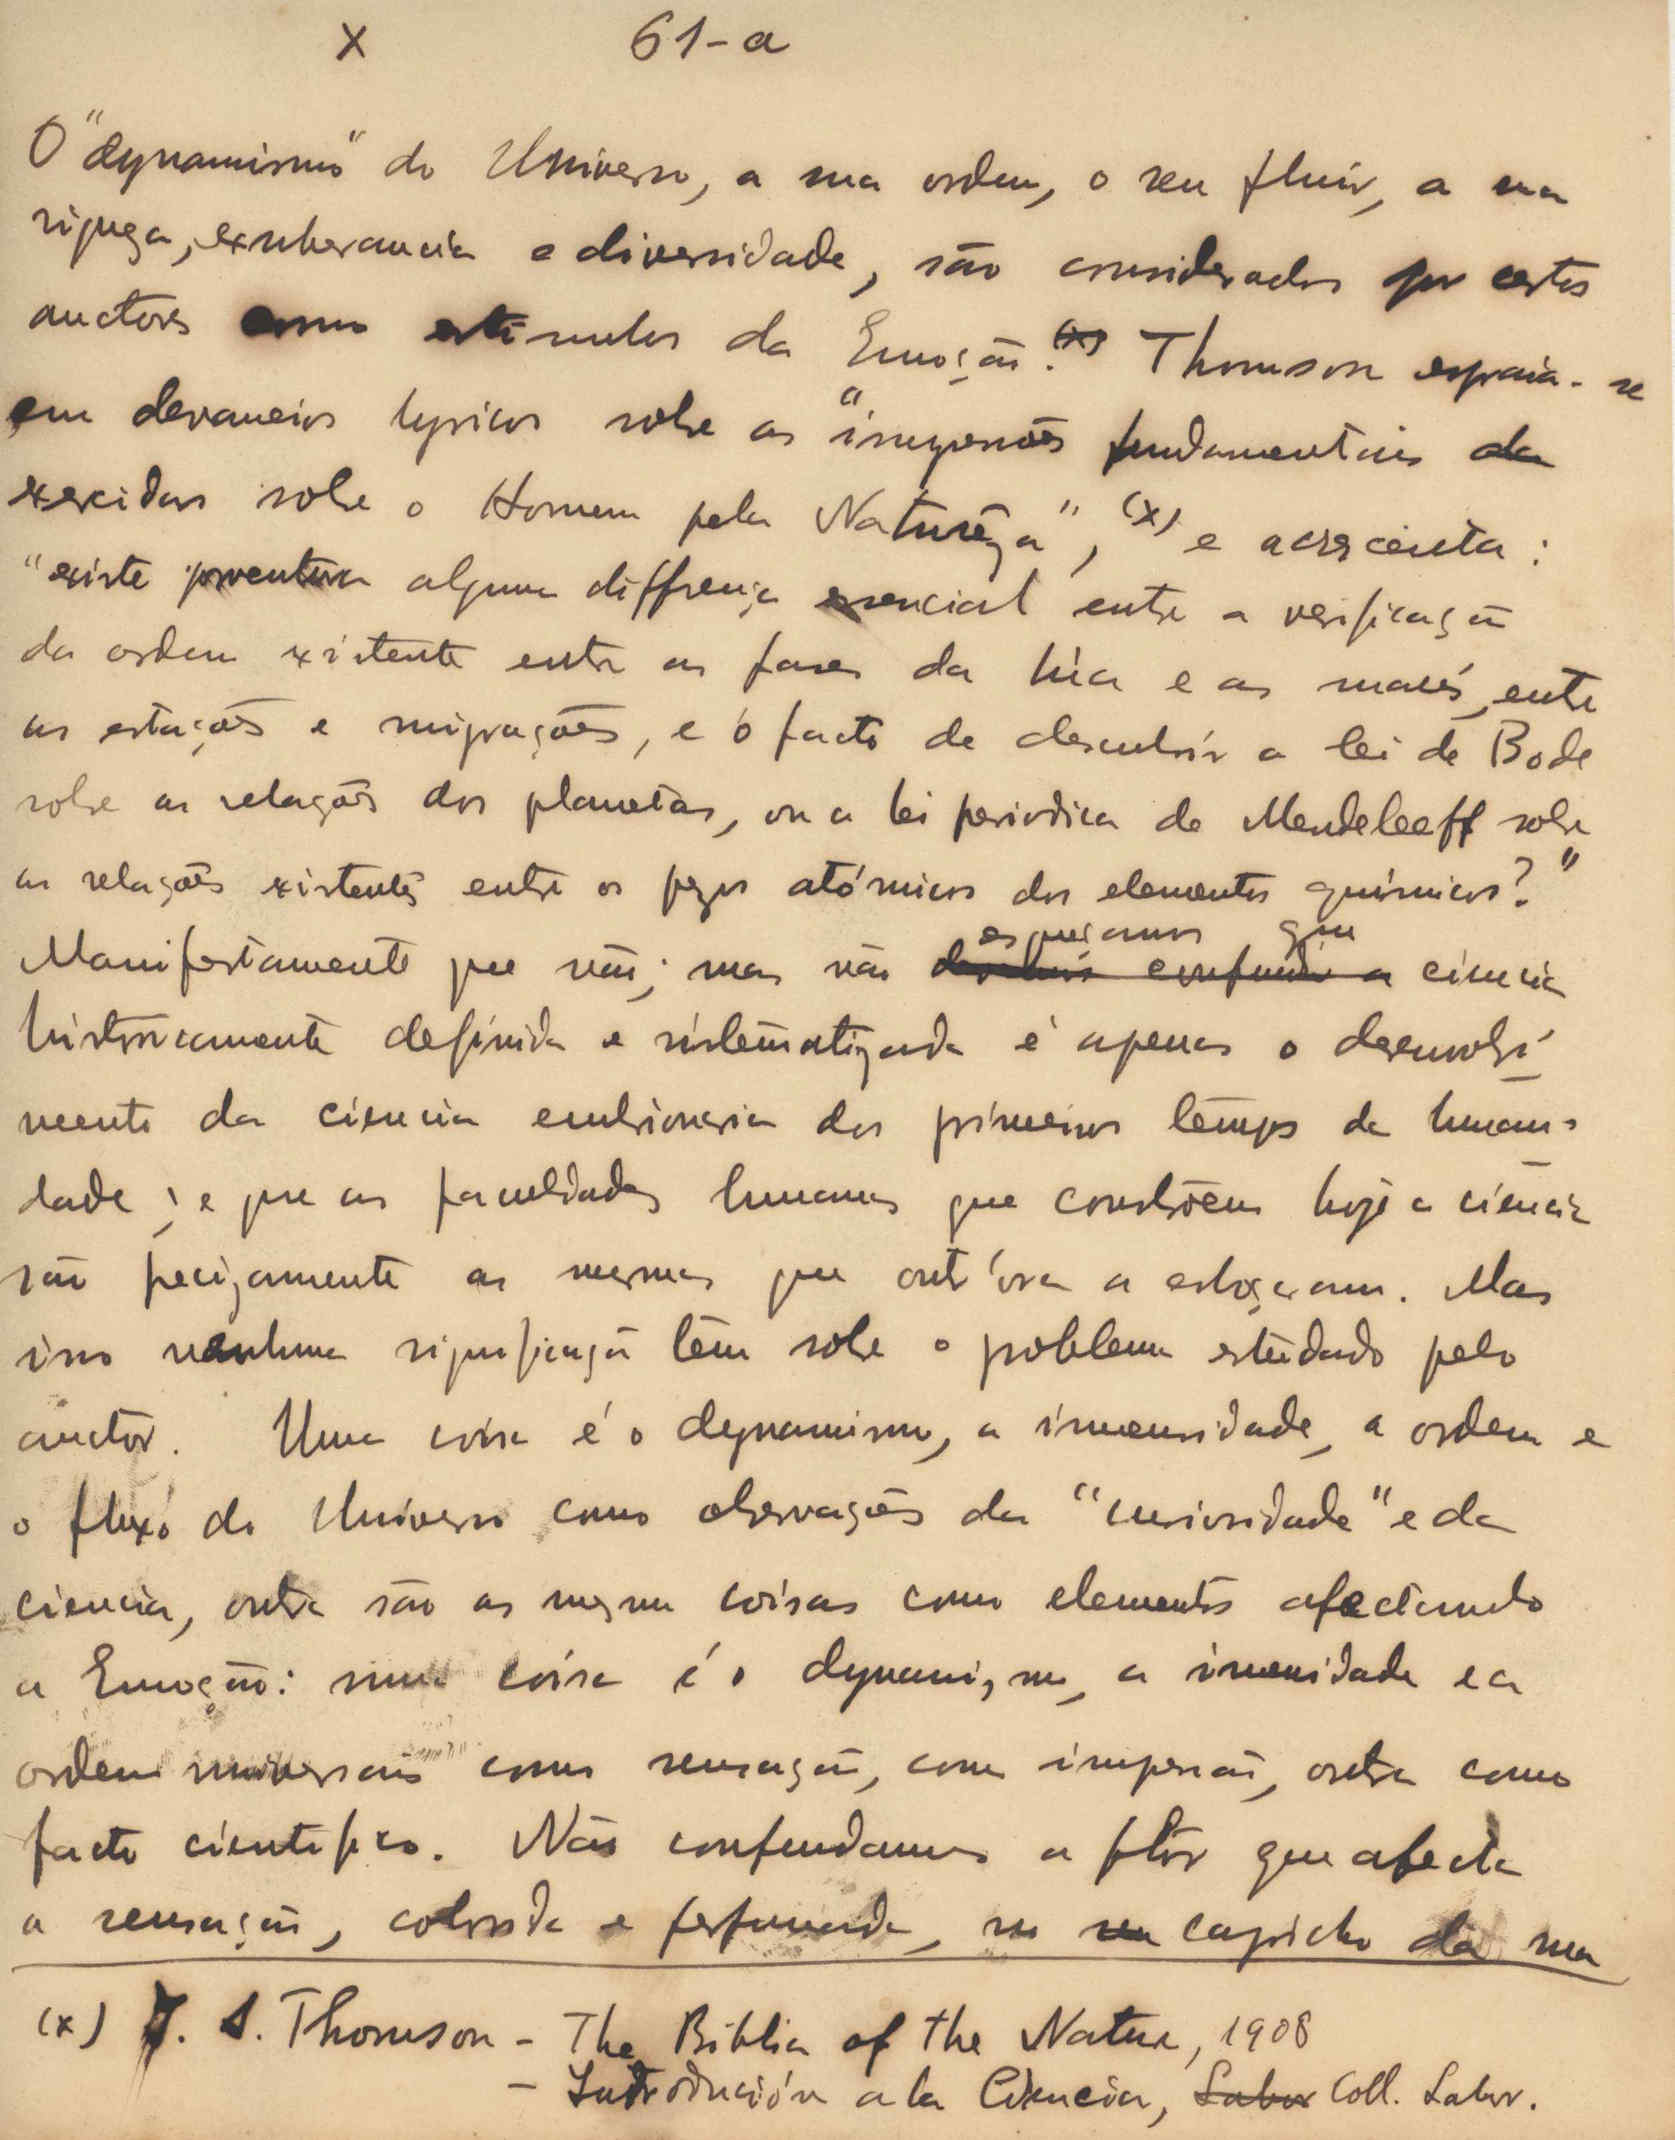 X 61-a
O "dynamismo" do Universo, a sua ordem, o seu fluir, a sua
riqueza, exuberancia e diversidade, são considerados por certos
auctores como estimulos da Emoção. (x) Thomson espraia-se
em devaneios lyricos sobre as "impressões fundamentais da
exercidas sobre o Homem pela Naturêza", (x) e acrescenta:
"existe porventura alguma diffrença essencial entre a verificação
da ordem existente entre as fases da lúa e as marés, entre
as estações e migrações, e o facto de descubrir a lei de Bode
sobre as relações dos planetas, ou a lei periodica de Mendeleeff sobre
as relações existentes entre os pezos atómicos dos elementos químicos?"
esqueçamos que
Manifestamente que não; mas não confundir a ciencia
historicamente definida e sistematizada é apenas o desenvolvi
mento da ciencia embrionaria dos primeiros tempos da humani
dade; e que as faculdades humanas que constróem hoje a ciência
são precizamente as mesmas que outr'ora a esboçaram. Mas
isso nenhuma significação têm sobre o problema estudado pelo
auctor. Uma coisa é o dynamismo, a imensidade, a ordem e
o fluxo do Universo como observações da "curiosidade" e da
ciencia, outra são as mesmas coisas como elementos afectando
a Emoção: uma coisa é o dynamismo, a imensidade e a
ordem universais como sensação, como impressão, outra como
facto cientifico. Não confundamos a flôr que afecta
a sensação, colorida e perfumada, no seu capricho da sua
(x) J. A. Thomson - The Biblia of the Nature, 1908
- Introdución a la Ciencia, Labor Coll. Labor.